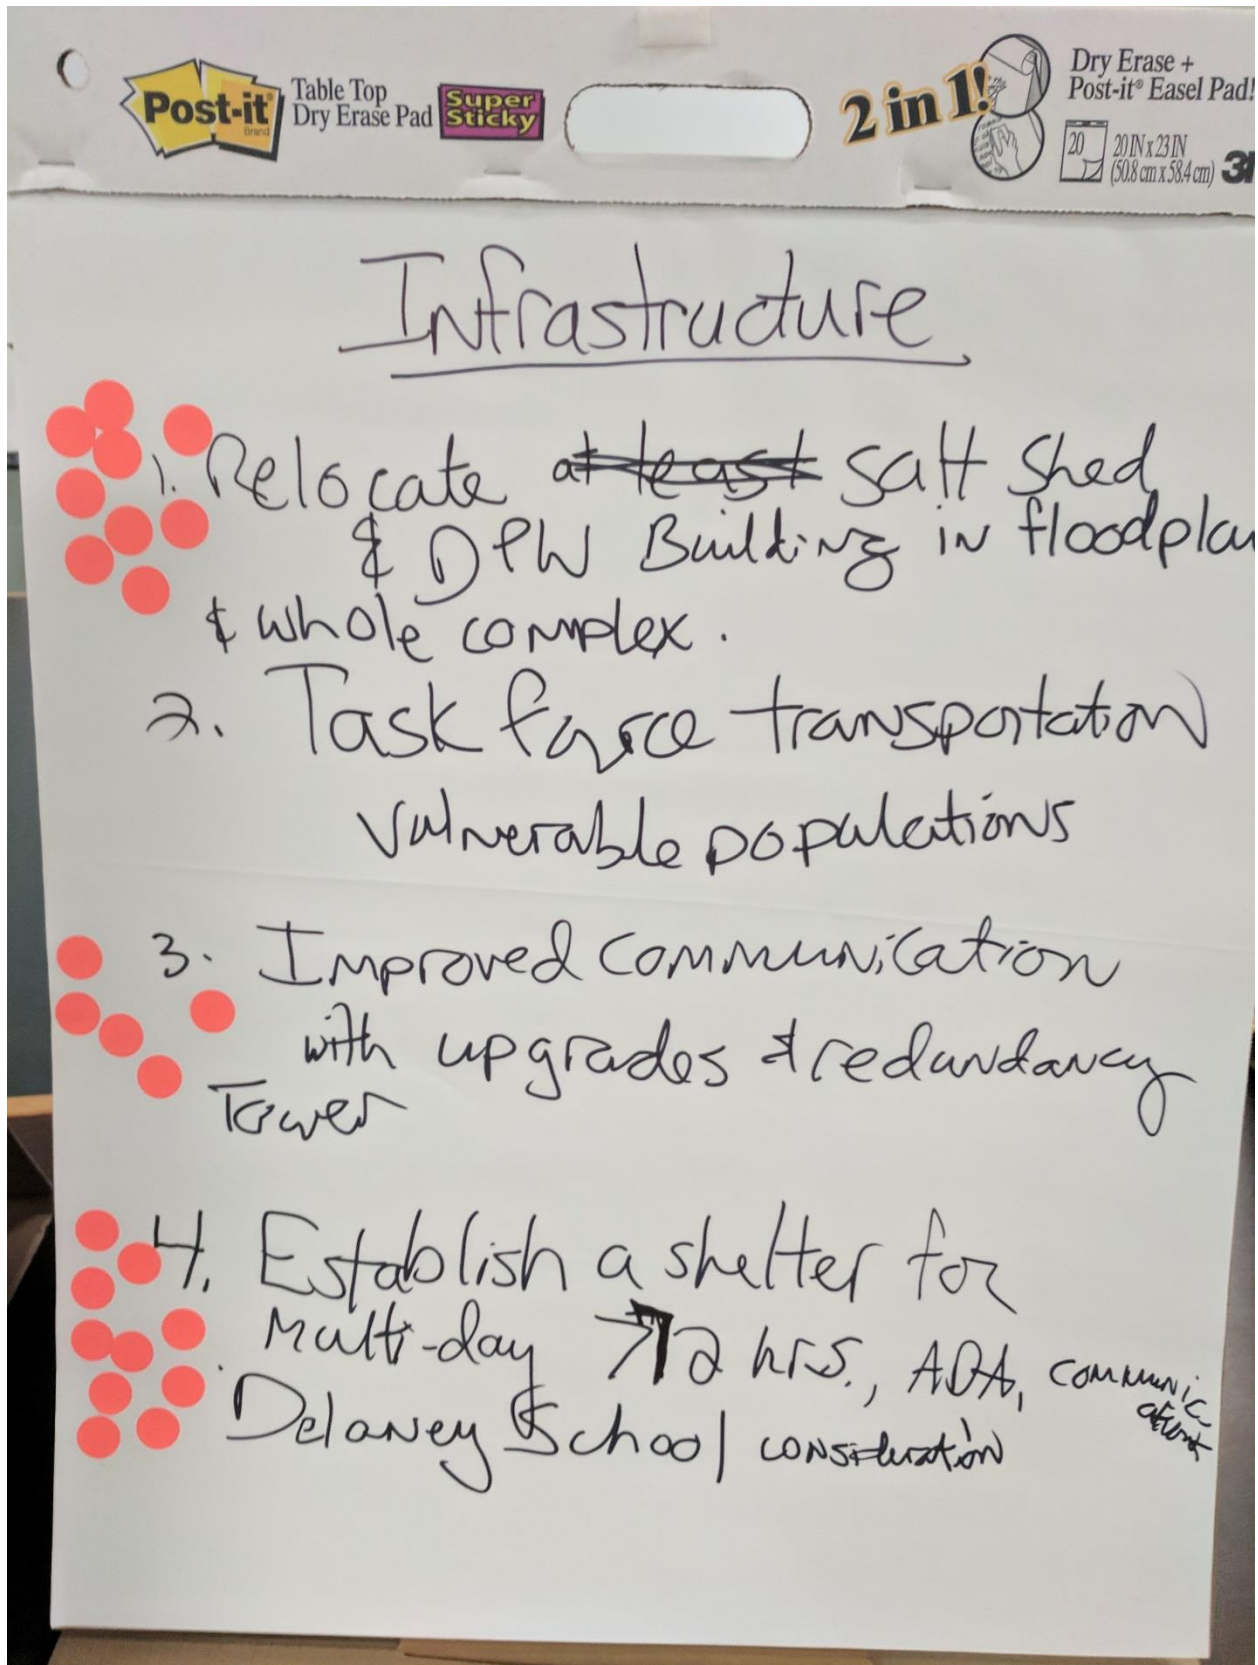 Post-it
Brand
Table Top
Dry Erase Pad
Super
Sticky
2 in 1!
Dry Erase +
Post-it® Easel Pad!
20
20 IN x 23 IN
(50.8 cm x 58.4 cm)
Infrastructure
1. Relocate at least salt shed
& DPW Building in floodplain
& whole complex.
2. Task force transportation
vulnerable populations
3. Improved communication
with upgrades & redundancy
Tower
4. Establish a shelter for
Multi-day >72 hrs., ADA, communic
Delaney School consideration